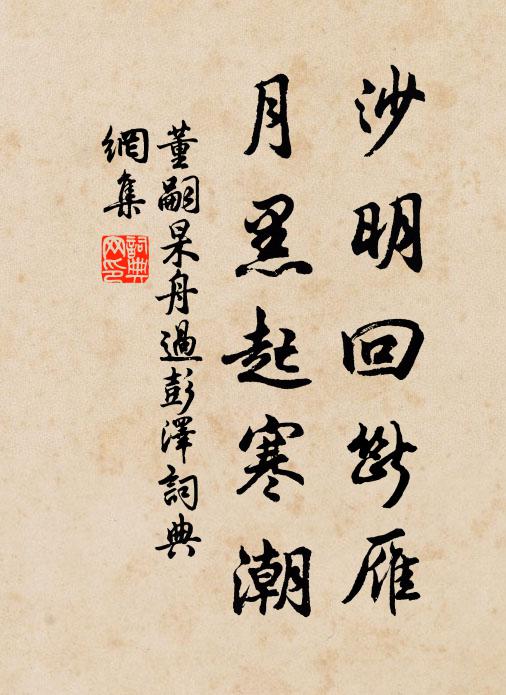 沙明回斷雁
月黑起寒潮
董嗣杲舟過彭澤詞典
網集
詞典
网印